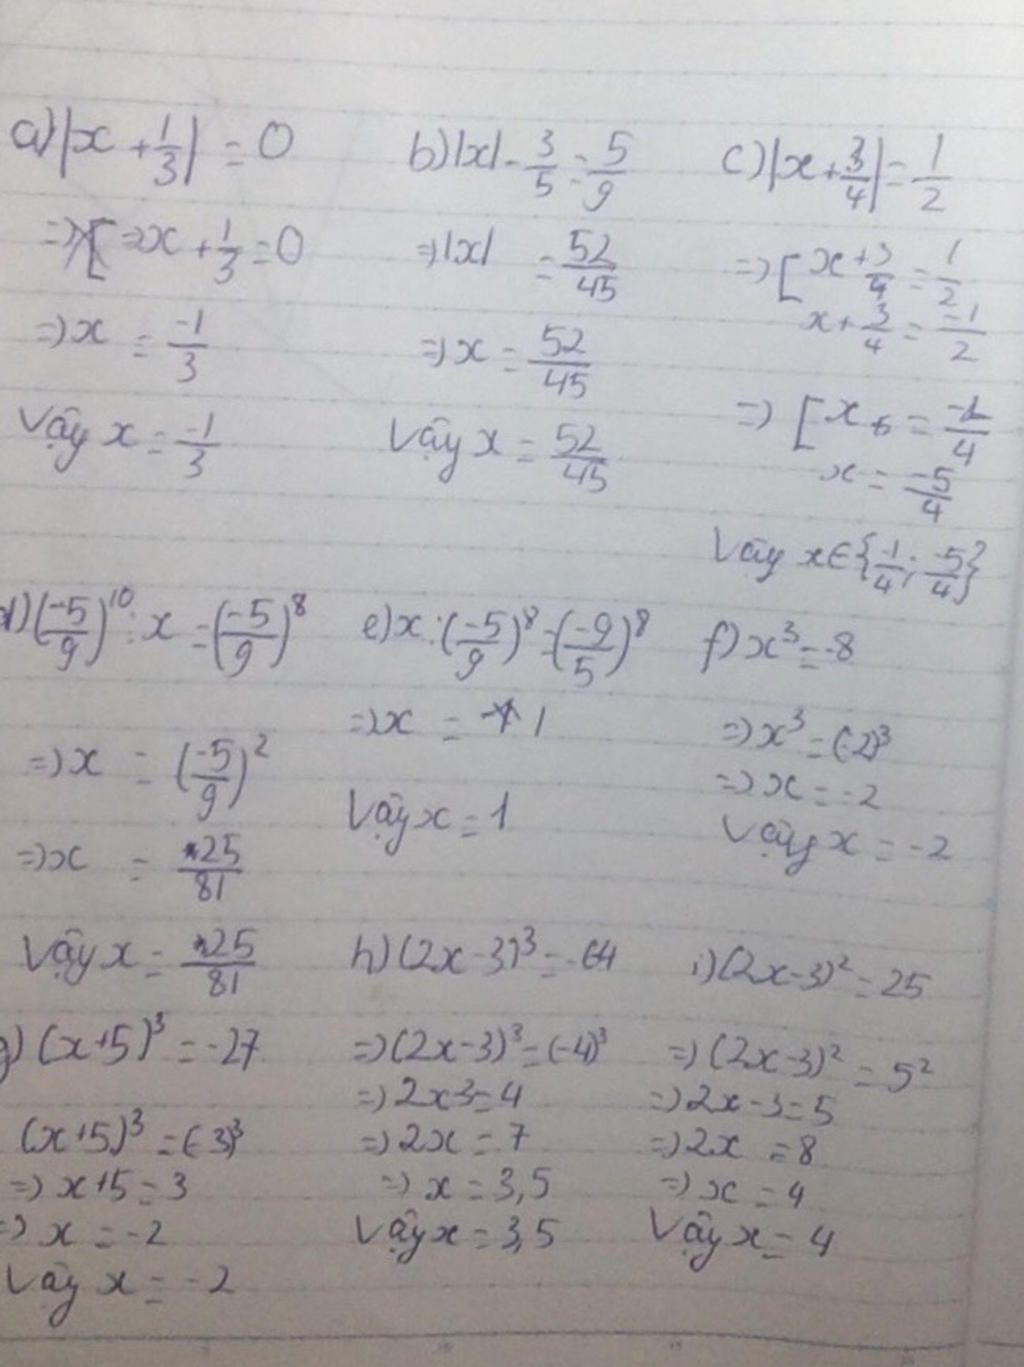 a) |x + 1/3| = 0
=> [ => x + 1/3 = 0
=> x = -1/3
Vậy x = -1/3
b) |x| - 3/5 = 5/9
=> |x| = 52/45
=> x = 52/45
Vậy x = 52/45
c) |x + 3/4| = 1/2
=> [ x + 3/4 = 1/2
x + 3/4 = -1/2
=> [ x = -1/4
x = -5/4
Vậy x ∈ {-1/4; -5/4}
d) (-5/9)^10 : x = (-5/9)^8
=> x = (-5/9)^2
=> x = 25/81
Vậy x = 25/81
e) x : (-5/9)^8 = (-9/5)^8
=> x = 1
Vậy x = 1
f) x^3 = -8
=> x^3 = (-2)^3
=> x = -2
Vậy x = -2
g) (x+5)^3 = -27
(x+5)^3 = (-3)^3
=> x+5 = 3
=> x = -2
Vậy x = -2
h) (2x-3)^3 = -64
=> (2x-3)^3 = (-4)^3
=> 2x-3 = 4
=> 2x = 7
=> x = 3,5
Vậy x = 3,5
i) (2x-3)^2 = 25
=> (2x-3)^2 = 5^2
=> 2x-3 = 5
=> 2x = 8
=> x = 4
Vậy x = 4